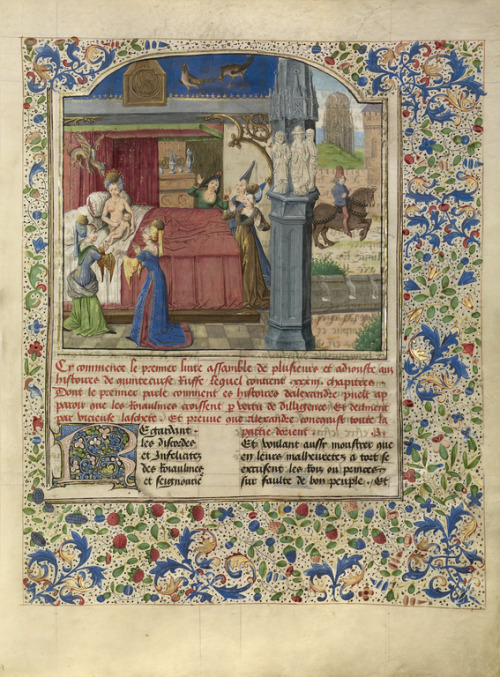 Cy commence le premier livre assamble de plusieurs et adiouste aux
histoires de quinte curse Ruffe lequel contient xxxiii chapitres
Dont le premier parle comment es histoires dalexandre puelt ap
paroir que les Roiaulmes croissent par vertu de dilligence Et declinent
par vicieuse laschete. Et preuve que Alexandre conquist toute la
partie dorient
Regardant
les discordes
et Infelicites
des Roiaulmes
et seignourie
Et voulant aussi monstrer que
en leurs malheuretes a tort se
excusent les Rois ou princes
sur faulte de bon peuple. Et